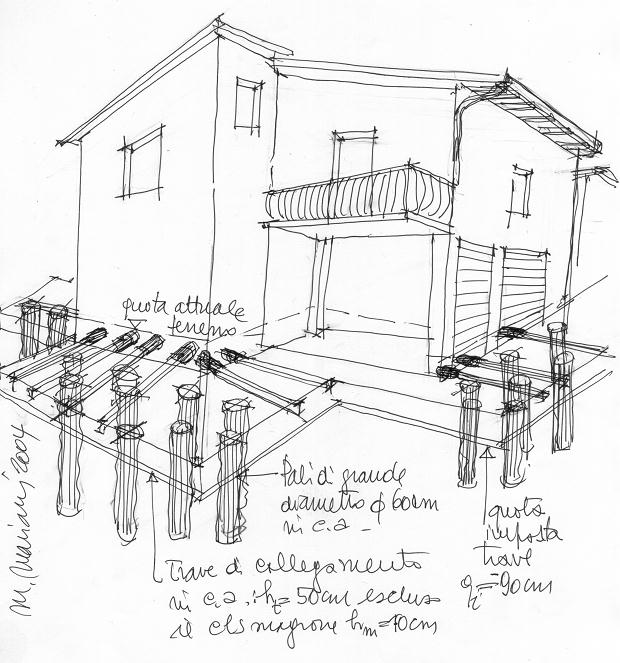 quota attuale
terreno
Pali di grande
diametro φ 60cm
in c.a -
quota
imposta
trave
qi=-90cm
Trave di collegamento
in c.a.: ht=50cm escluso
il cls magrone hm=10cm
M. Mariani 2004